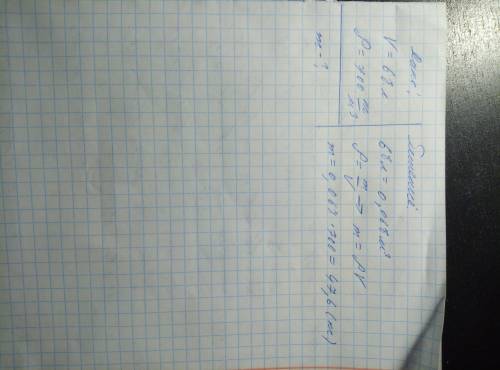 Дано:
V = 68 л
ρ = 700 кг/м3
m - ?
Решение
68 л = 0,068 м3
ρ = m/V → m = ρV
m = 0,068 · 700 = 47,6 (кг)